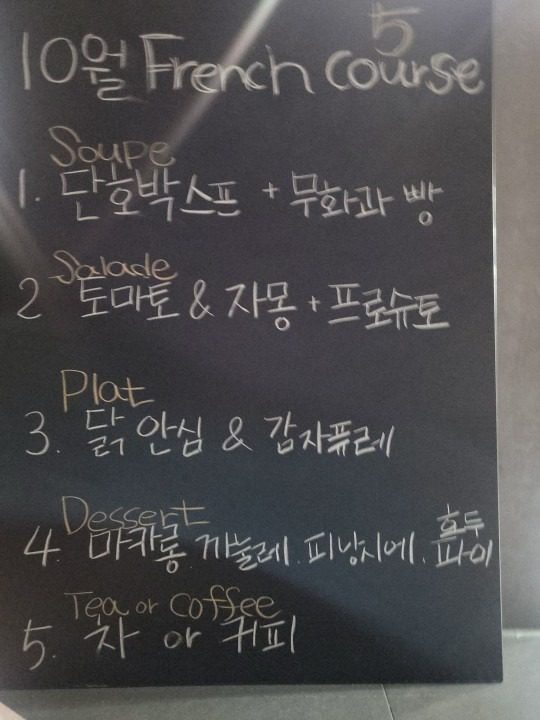 5
10월 French course
Soupe
1. 단호박스프 + 무화과 빵
Salade
2 토마토 & 자몽 + 프로슈토
Plat
3. 닭 안심 & 감자퓨레
Dessert
4. 마카롱 까눌레. 피낭시에. 호두
파이
Tea or Coffee
5. 차 or 커피